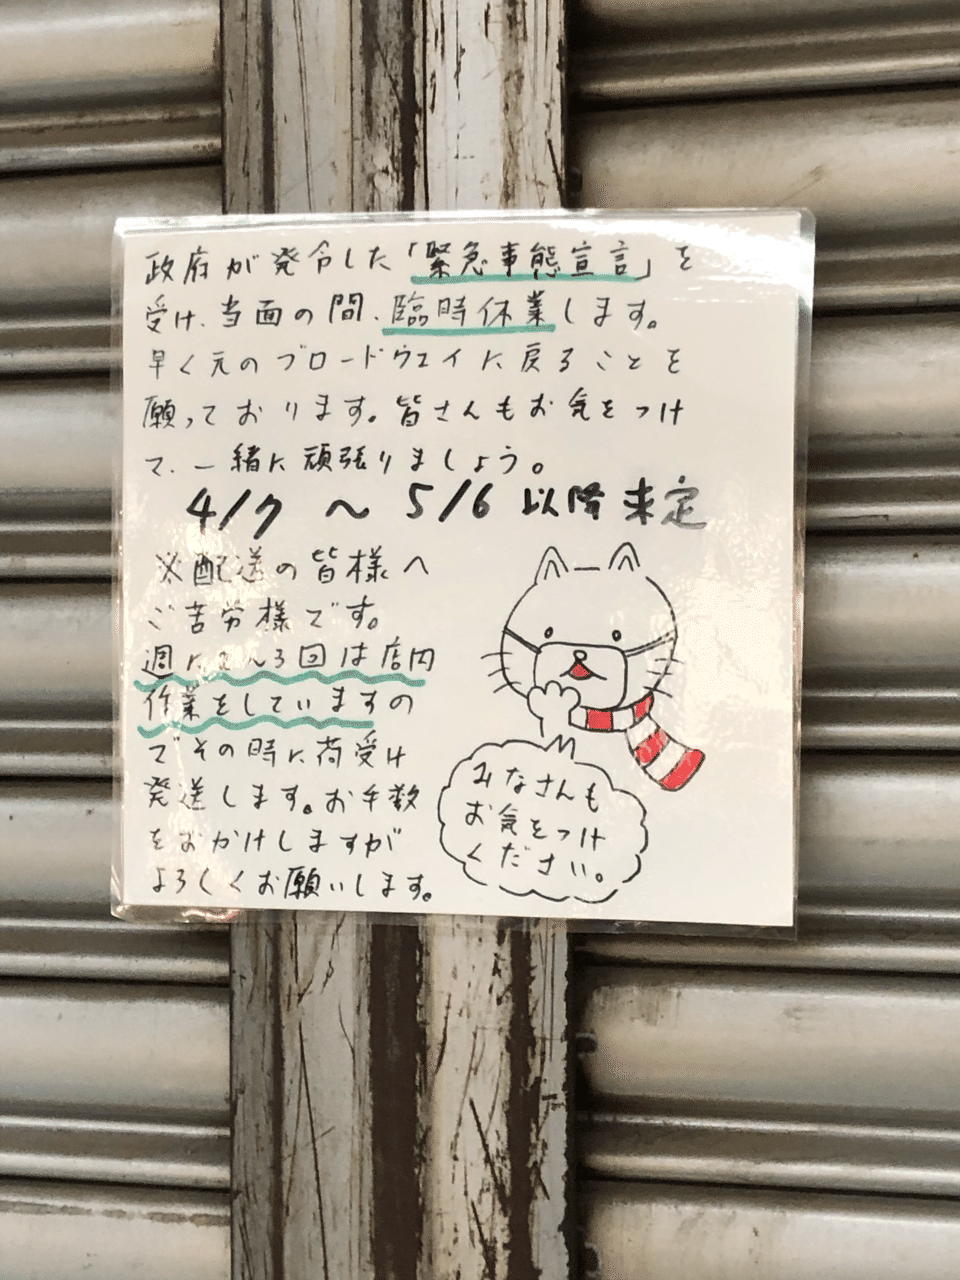 政府が発令した「緊急事態宣言」を
受け、当面の間、臨時休業します。
早く元のブロードウェイに戻ることを
願っております。皆さんもお気をつけ
て、一緒に頑張りましょう。
4/7 〜 5/6 以降未定
※配送の皆様へ
ご苦労様です。
週に2〜3回は店内
作業をしていますの
でその時に荷受け
発送します。お手数
をおかけしますが
よろしくお願いします。
みなさんも
お気をつけ
ください。